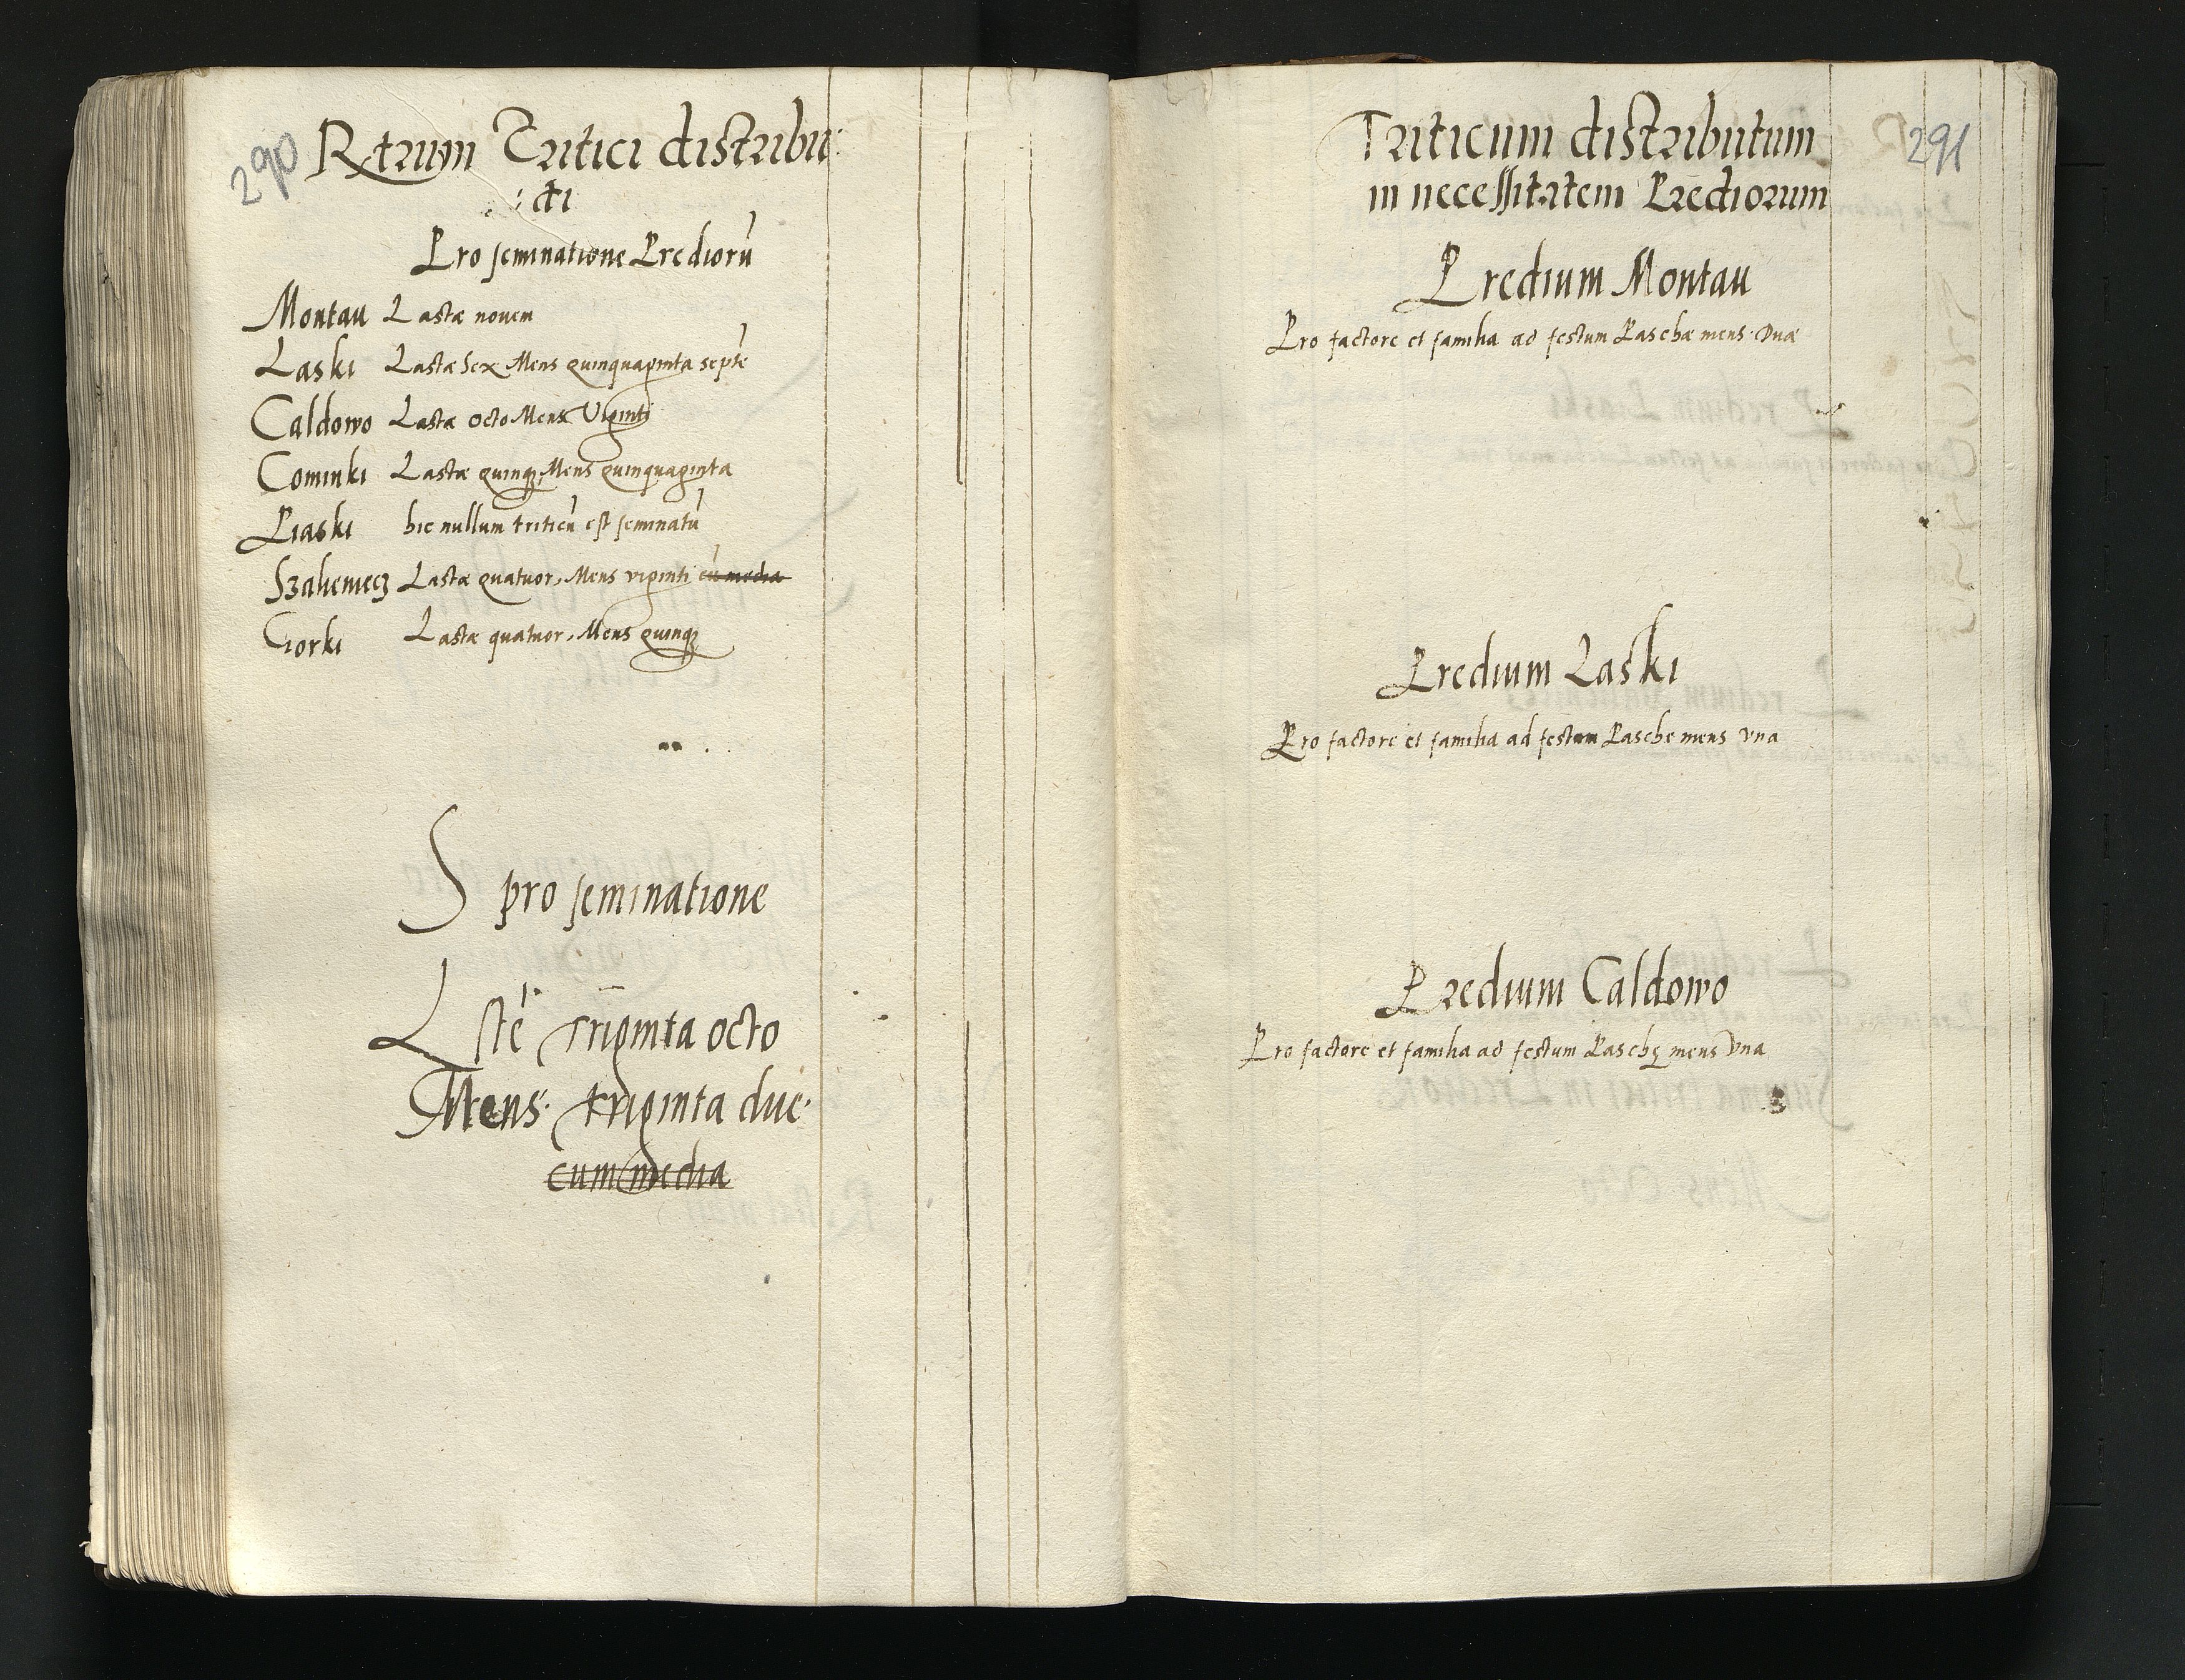 290
Rtrum Tritici distribu:
:ti
Pro seminatione Prediorũ
Montau Lastæ novem
Laski Lastæ Sex Mens quinquaginta septẽ
Caldowo Lastæ octo Mens Viginti
Cominki Lastæ quinq; Mens quinquaginta
Piaski hic nullum triticũ est seminatũ
Szaliemecz Lastæ quatuor, Mens viginti cũ media
Gorki Lastæ quatuor, Mens quinq;
S pro seminatione
Lstẽ Triginta octo
Mens. triginta due.
cum media
291
Triticum distributum
in necessitatem Prediorum
Predium Montau
Pro factore et familia ad festum Paschæ mens. Duæ
Predium Laski
Pro factore et familia ad festum Pasche mens una
Predium Caldowo
Pro factore et familia ad festum Paschę mens Una